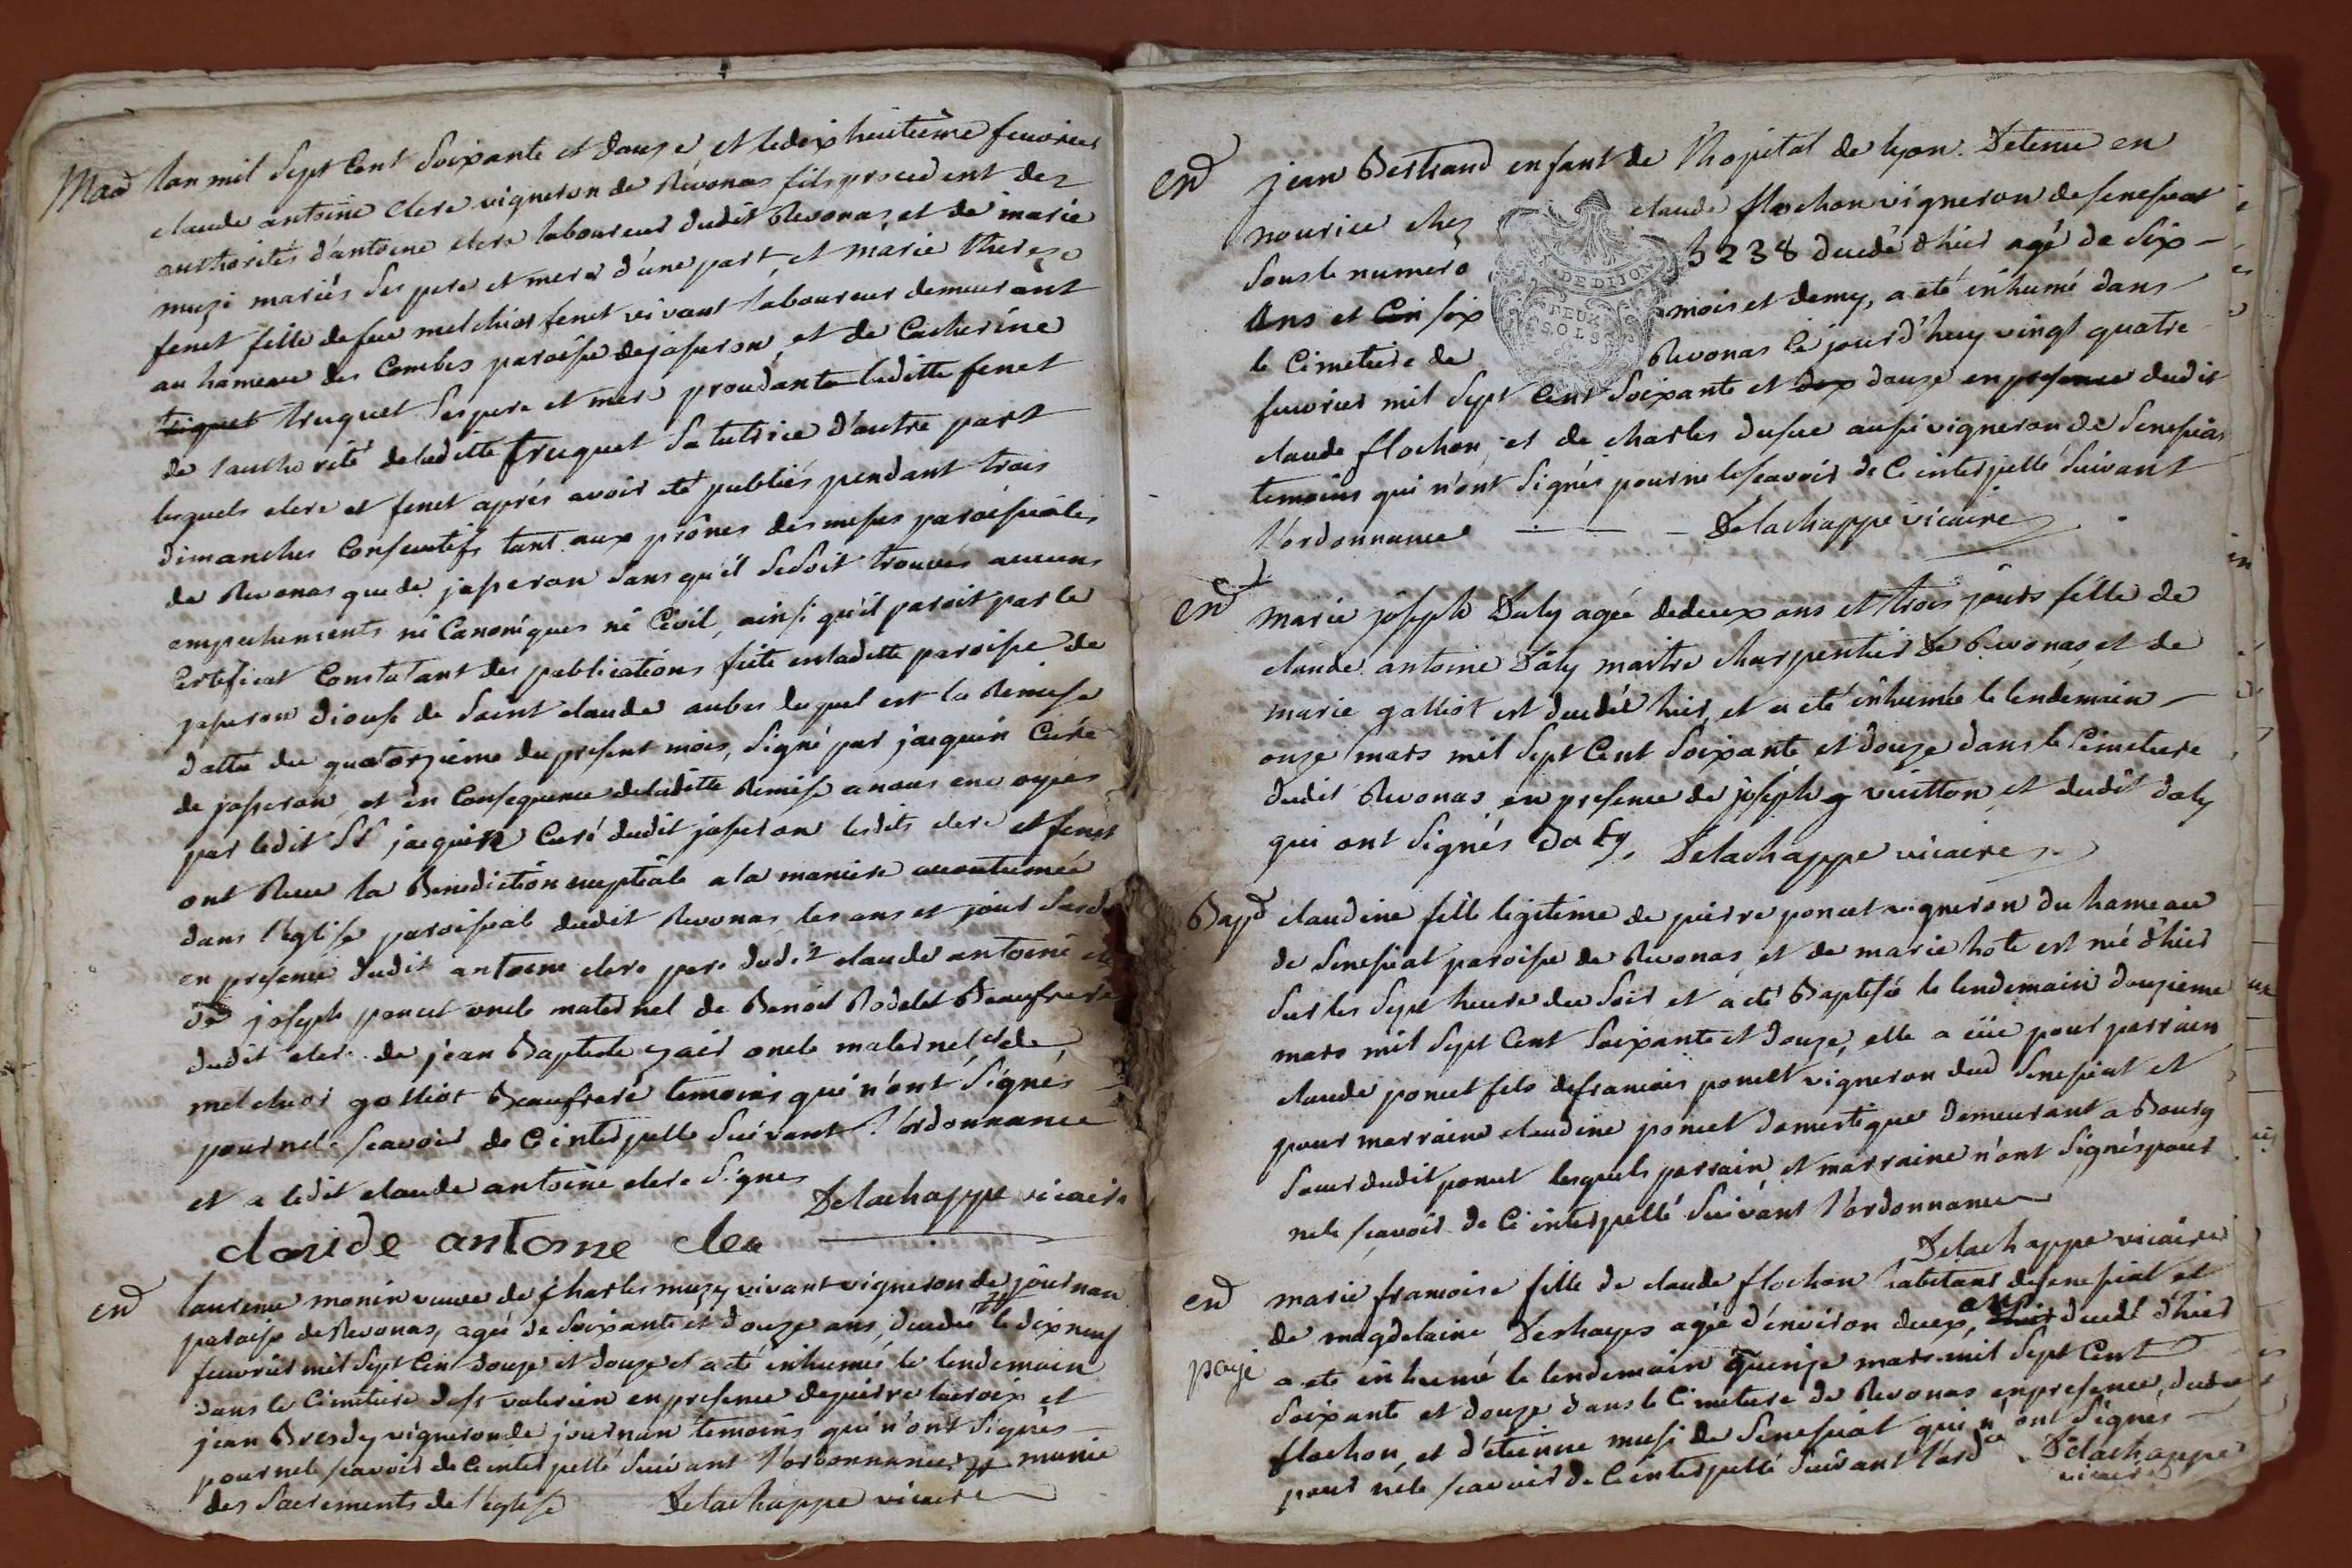 Mard lan mil sept cent soixante et douze et le dix huitième fevrier
claude antoine clere vigneron de Revonas fils procedent des
authorités d'antoine clere laboureur dudit Revonas, et de marie
muzi mariés ses pere et mere d'une part, et marie therese
fenet fille de feu melchior fenet vivant laboureur demeurant
au hameau des Combes paroisse de jasseron, et de Catherine
truguet ses pere et mere procedante laditte fenet
de l'authorité de laditte truguet sa tutrice d'autre part
lesquels clere et fenet aprés avoir eté publiés pendant trois
dimanches consecutifs tant aux prônes des messes paroissiales
de Revonas que de jasseron sans qu'il se soit trouvés aucuns
empechements ni Canoniques ni Civil, ainsi qu'il paroit par le
Certificat Constatant des publications faite en laditte paroisse de
jasseron diocese de Saint claude aubas duquel est la Remise
datte du quatorzieme du present mois, signé par jacquin Curé
de jasseron, et en Consequence de laditte Remise a nous envoyée
par ledit Sr jacquin Curé dudit jasseron lesdits clere et fenet
ont Receu la Benediction nuptiale a la maniere accoutumée
dans l'eglise paroissial dudit Revonas les ans et jour susd
en presence dudit antoine clere pere dudit claude antoine
de joseph poncet oncle maternel de Benoit Rodelet Beaufrere
dudit clere de jean Baptiste oncle maternel et de
melchior galliot Beaufrere temoins qui n'ont signés
pour ne le scavoir de Ce interpellé suivant l'ordonnance
et a ledit claude antoine clere signes
Delachappe vicaire
claude antoine clere
end laurence monin veuve de charles muzy vivant vigneron de journan
paroisse de Revonas, agée de soixante et douze ans, decedée le dix neuf
fevrier mil sept cen douze et douze et a eté inhumée le lendemain
dans le Cimetiere de st valerien en presence de pierre lacroix et
jean Bresdy vigneron de journan temoins qui n'ont signés
pour ne le scavoir de Ce interpellé suivant l'ordonnance munie
des sacrements de l'eglise Delachappe vicaire
end jean Bertrand enfant de l'hopital de lyon. Detenu en
nourice chez claude flochon vigneron de senessiat
sous le numero 5238 decedé d'hier agé de six
Ans et Cin six mois et demy, a eté inhumé dans
le Cimetiere de Revonas Ce jourd'huy vingt quatre
fevrier mil sept Cent soixante et dix douze en presence dudit
claude flochon, et de charles dufue aussi vigneron de senessiat
temoins qui n'ont signés pour ne le scavoir de Ce interpellé suivant
l'ordonnance Delachappe vicaire
MA. DE DIJON
DEUX
SOLS
end marie joseph Daly agée de deux ans et trois jours fille de
claude antoine Daly maitre charpentier de Revonas, et de
marie galliot est decedée hier, et a eté inhumée le lendemain
onze mars mil sept Cent soixante et douze dans le Cimetiere
dudit Revonas, en presence de joseph guitton et dudit daly
qui ont signés Daly, Delachappe vicaire
Bapd claudine fille legitime de pierre poncet vigneron du hameau
de senessiat paroisse de Revonas, et de marie hote est née d'hier
sur les sept heure du soir, et a eté Baptisée le lendemain douzieme
mars mil sept Cent soixante et douze, elle a eüe pour parrain
claude poncet fils de francois poncet vigneron dud senessiat et
pour marraine claudine poncet domestique demeurant a Bourg
soeur dudit poncet lesquels parrain, et marraine n'ont signés pour
ne le scavoir de Ce interpellé suivant l'ordonnance
Delachappe vicaire
end marie francoise fille de claude flochon habitant de senessiat et
de magdelaine Deshayes agée d'environ deux ans decedé d'hier
payé a eté inhumé le lendemain quinze mars mil sept Cent
soixante et douze dans le Cimetiere de Revonas en presence dudit
flochon, et d'etienne musi de senessiat qui n'ont signés
pour ne le scavoir de Ce interpellé suivant l'ordce Delachappe
vicaire